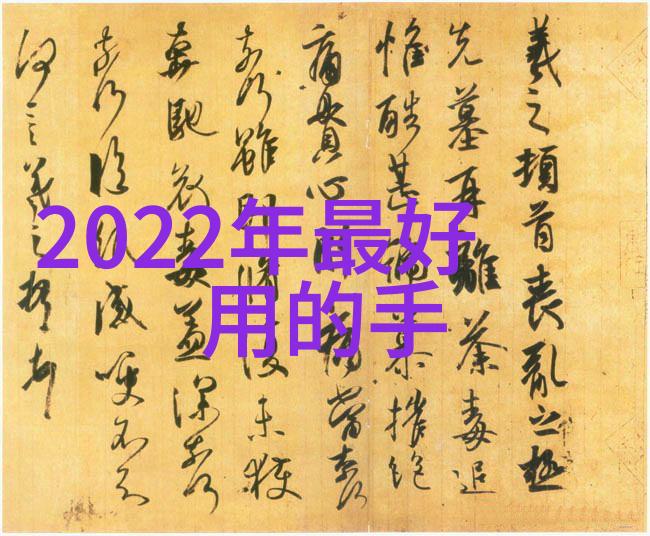 2022年最好
用的手
羲之頓首喪亂之極
先墓再離荼毒追
惟酷甚號慕摧絕
痛貫心肝痛當奈何
奈何雖即脩復未獲
奔馳哀毒益深奈何
奈何臨紙感哽不知
何言羲之頓首